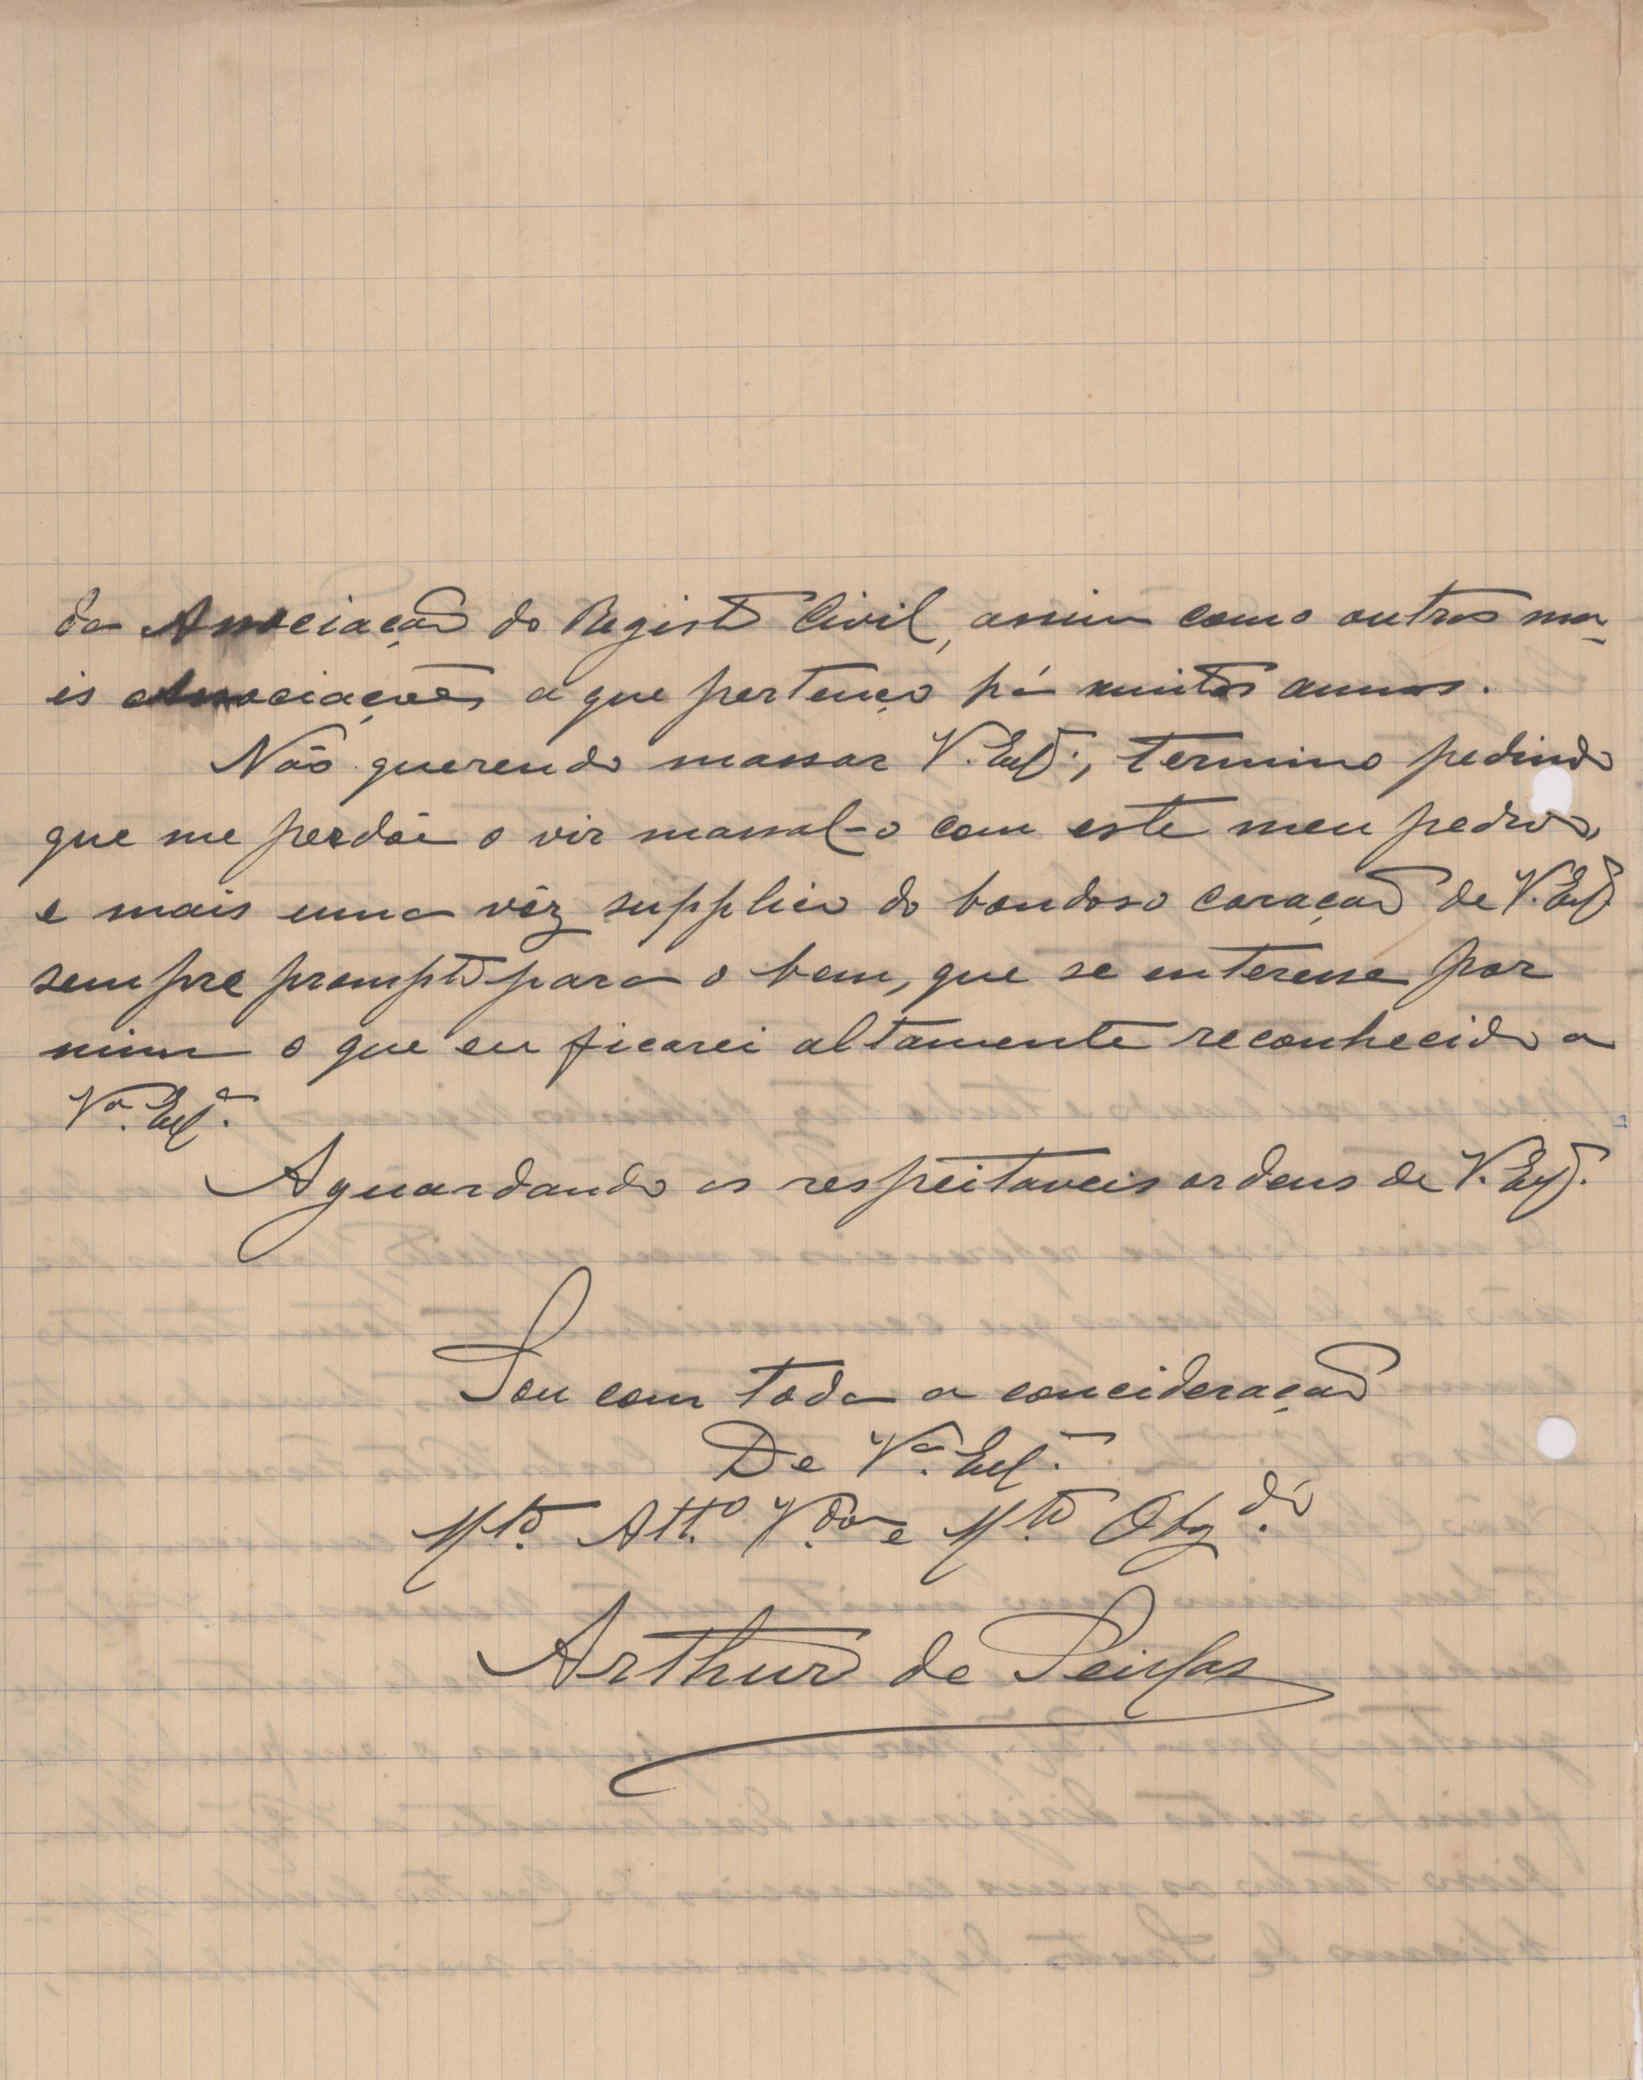 da Associação do Registo Civil, assim como outras ma-
is associações, a que pertenço há muitos annos.
Não querendo massar V. Exª., termino pedindo
que me perdôe o vir massal-o com este meu pedido,
e mais uma vêz supplico do bondoso coração de V. Exª
sempre prompto para o bem, que se enteresse por
mim o que eu ficarei altamente reconhecido a
Vª. Exª.
Aguardando as respeitaveis ordens de V. Exª.
Sou com toda a concideração
De Vª. Exª.
Mtº. Attº. V.dor e Mtº Obgdº.
Arthur de